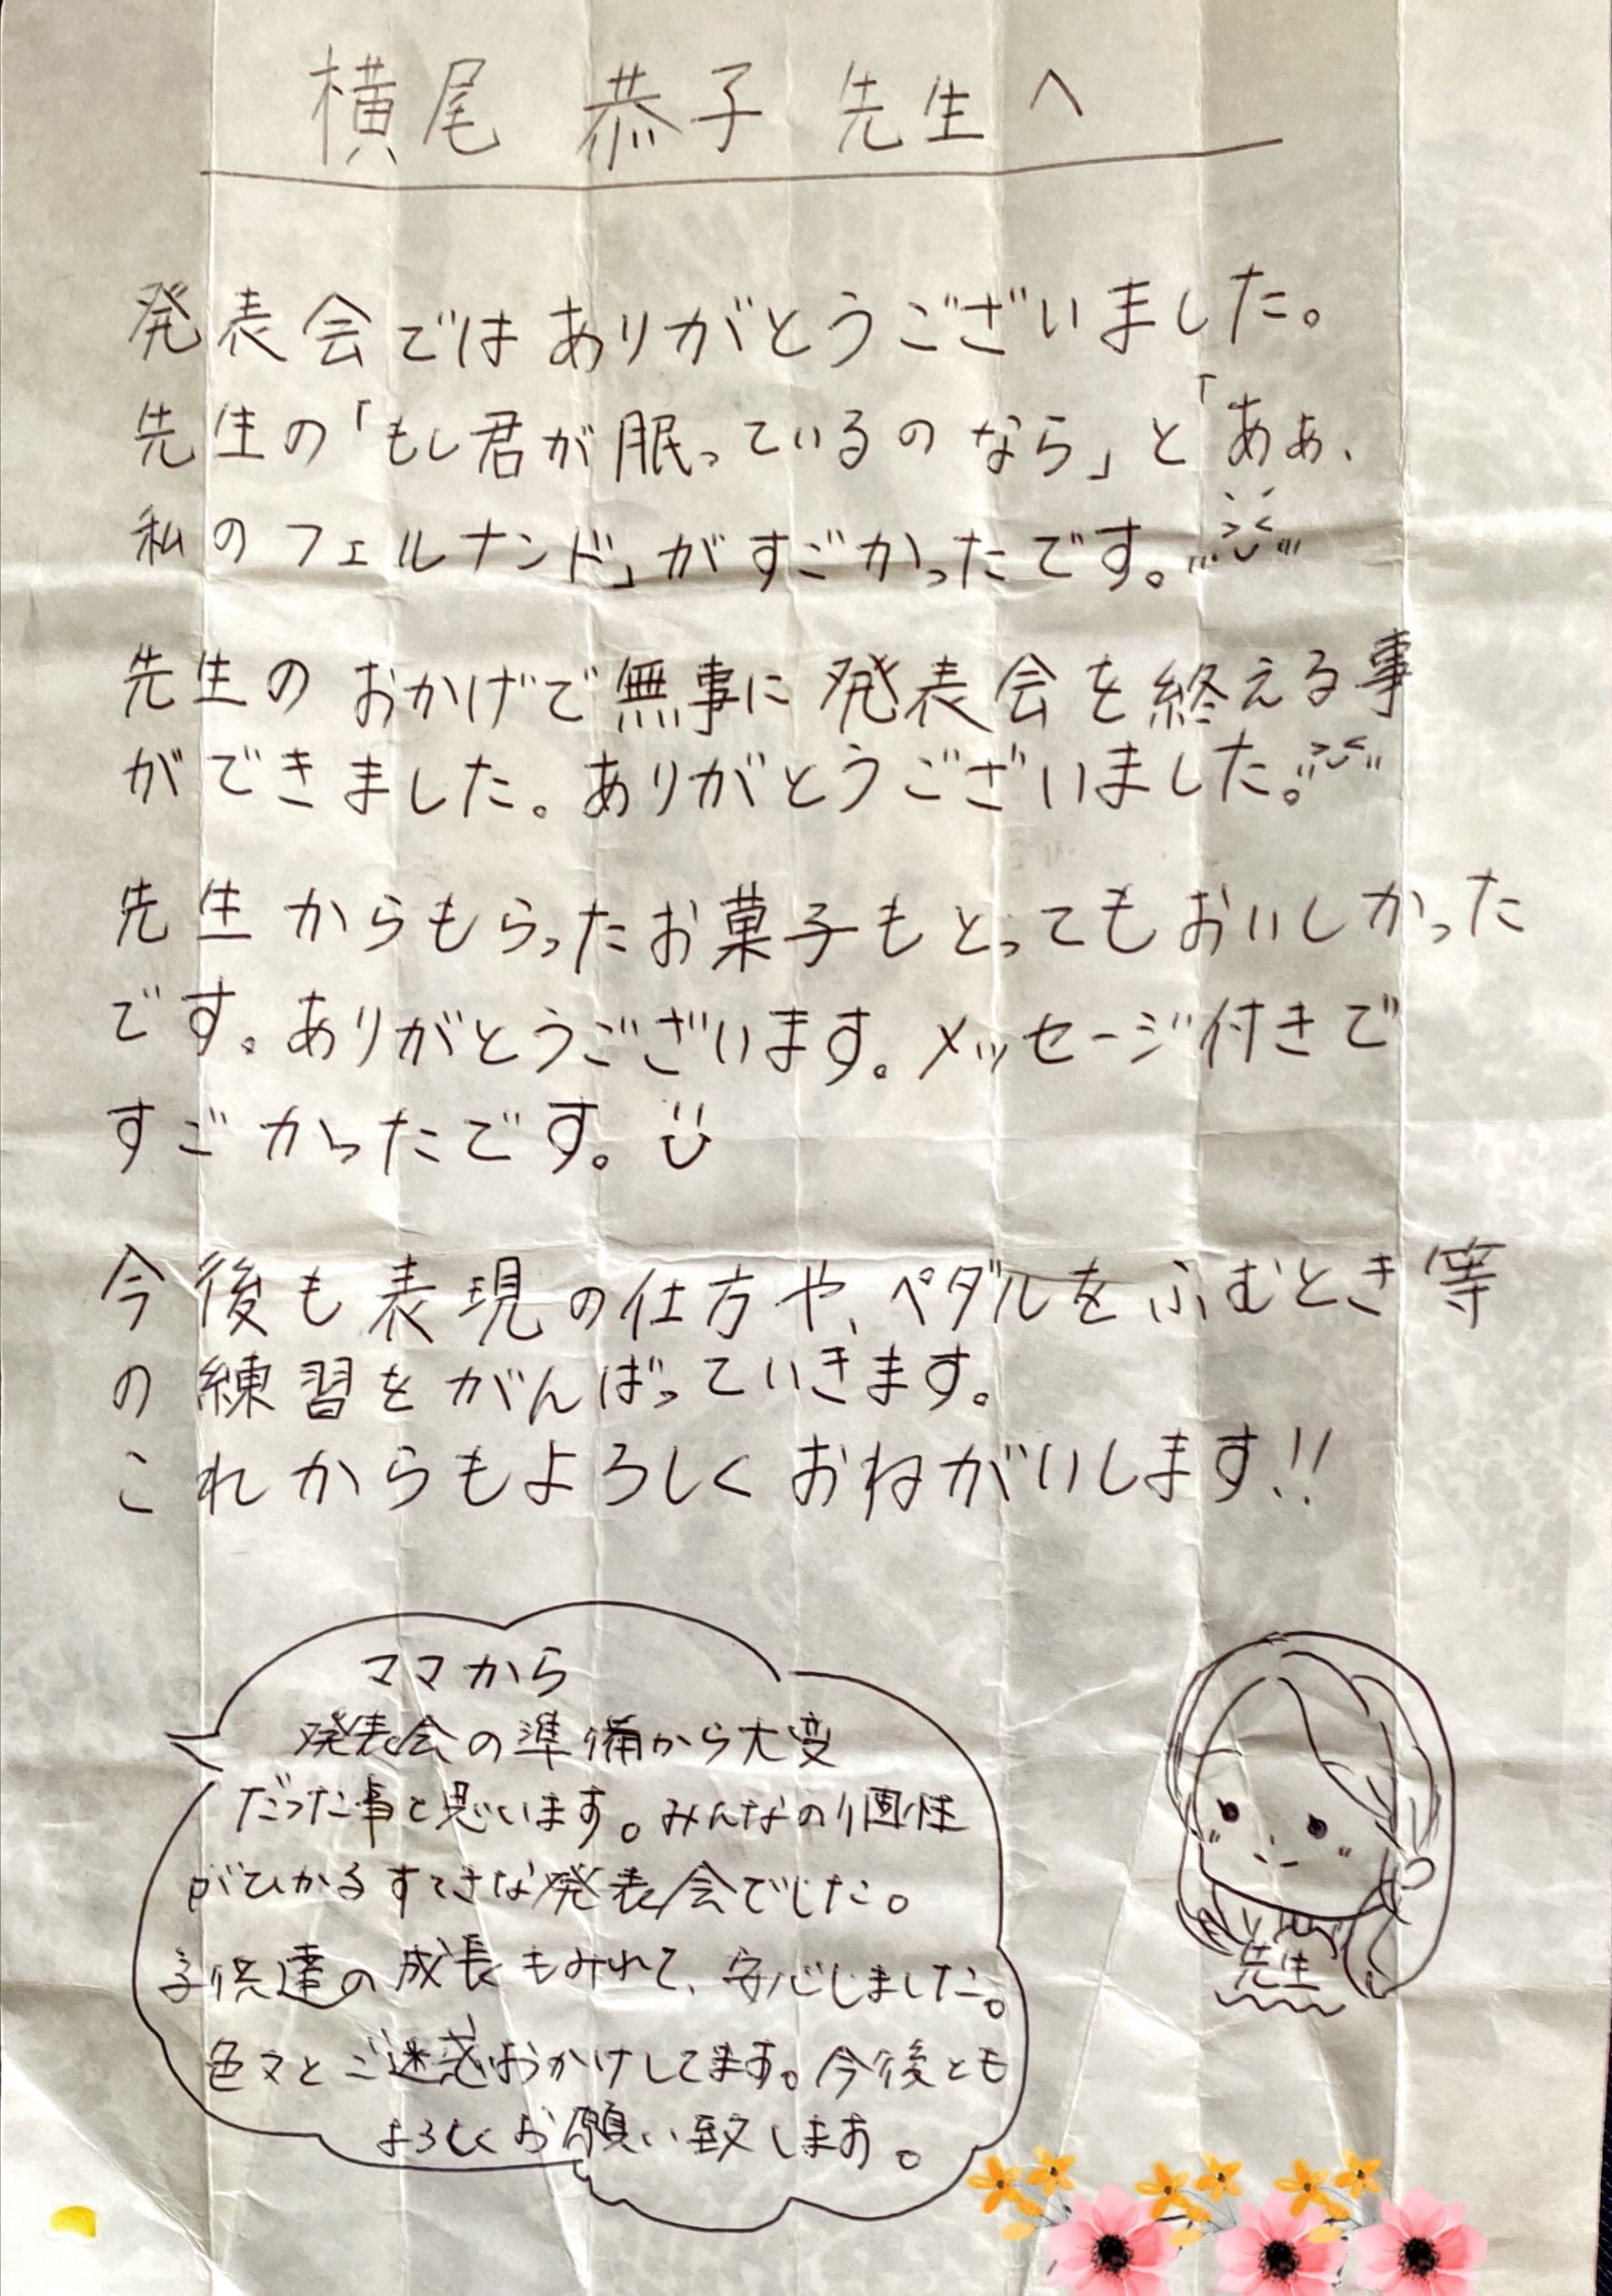 横尾 恭子 先生へ
発表会ではありがとうございました。
先生の「もし君が眠っているのなら」と「あぁ、
私のフェルナンド」がすごかったです。
先生のおかげで無事に発表会を終える事
ができました。ありがとうございました。
先生からもらったお菓子もとってもおいしかった
です。ありがとうございます。メッセージ付きで
すごかったです。
今後も表現の仕方や、ペダルをふむとき等
の練習をがんばっていきます。
これからもよろしくおねがいします!!
ママから
発表会の準備から大変
だった事と思います。みんなの個性
がひかるすてきな発表会でした。
子供達の成長もみれて、安心しました。
色々とご迷惑おかけしてます。今後とも
よろしくお願い致します。
先生